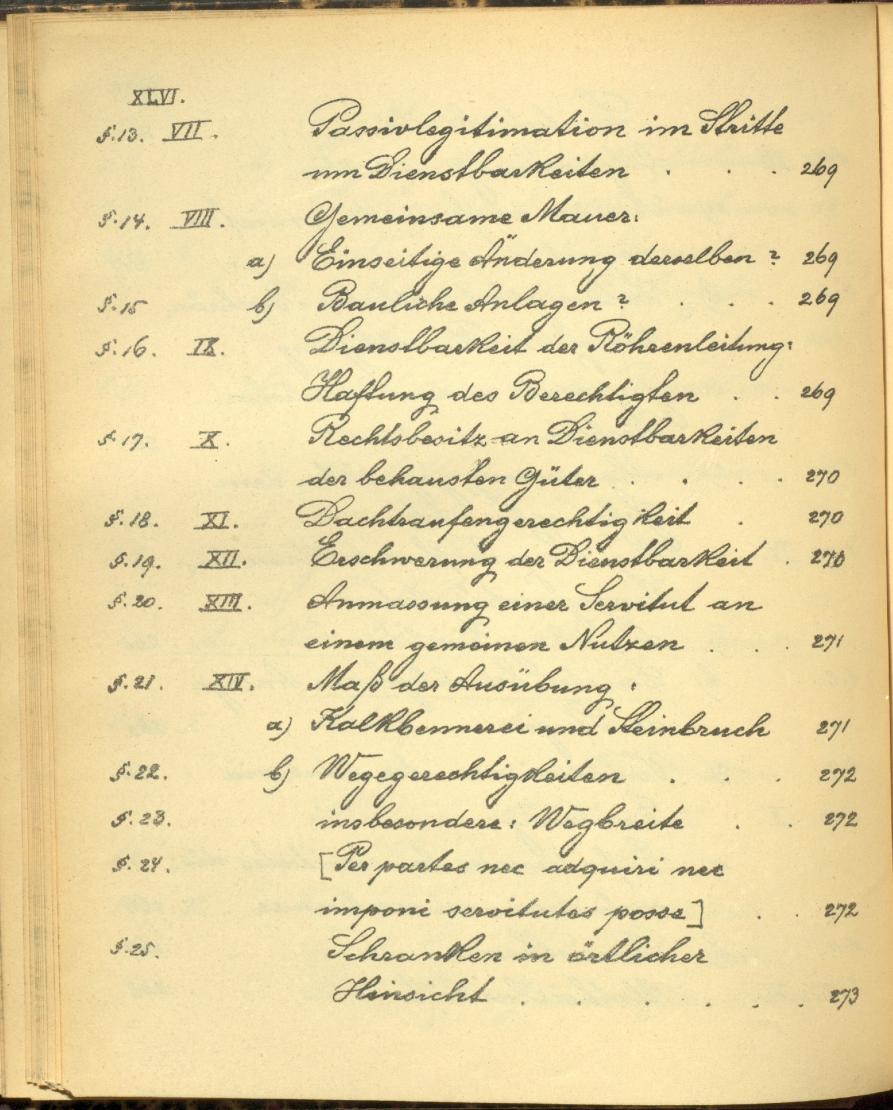 XLVI.
§.13. VII. Passivlegitimation im Stritte
um Dienstbarkeiten . . . 269
§.14. VIII. Gemeinsame Mauer:
a) Einseitige Änderung derselben? 269
§.15 b) Bauliche Anlagen? . . . 269
§.16. IX. Dienstbarkeit der Röhrenleitung:
Haftung des Berechtigten . . 269
§.17. X. Rechtsbesitz an Dienstbarkeiten
der behausten Güter . . . . 270
§.18. XI. Dachtraufengerechtigkeit . 270
§.19. XII. Erschwerung der Dienstbarkeit . 270
§.20. XIII. Anmassung einer Servitut an
einem gemeinen Nutzen . . . 271
§.21. XIV. Maß der Ausübung:
a) Kalkbennerei und Steinbruch 271
§.22. b) Wegegerechtigkeiten . . . 272
§.23. insbesondere: Wegbreite . . 272
§.24. [Per partes nec adquiri nec
imponi servitutes posse] . . 272
§.25. Schranken in örtlicher
Hinsicht . . . . . . 273